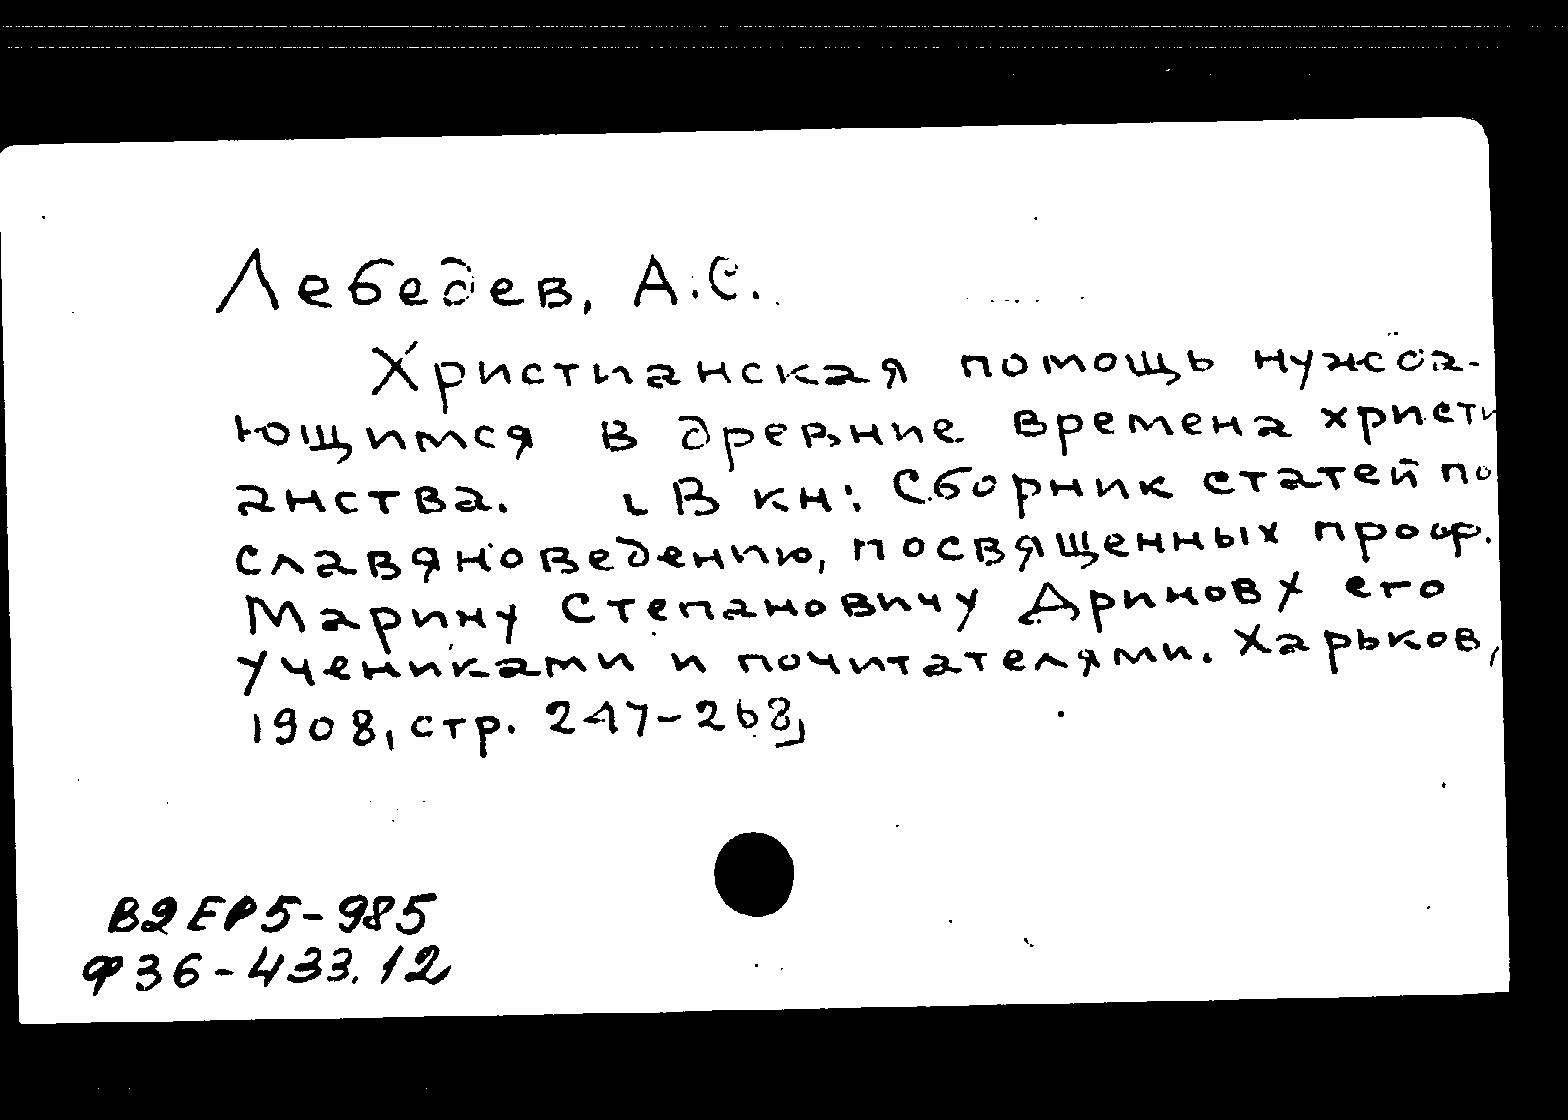 Лебедев, А.С.
Христианская помощь нужда-
ющимся в древние времена христи
анства. [В кн: Сборник статей по
славяноведению, посвященных проф.
Марину Степановичу Дринову его
учениками и почитателями. Харьков,
1908, стр. 247-268]
В2ЕР5-985
Ф36-433.12